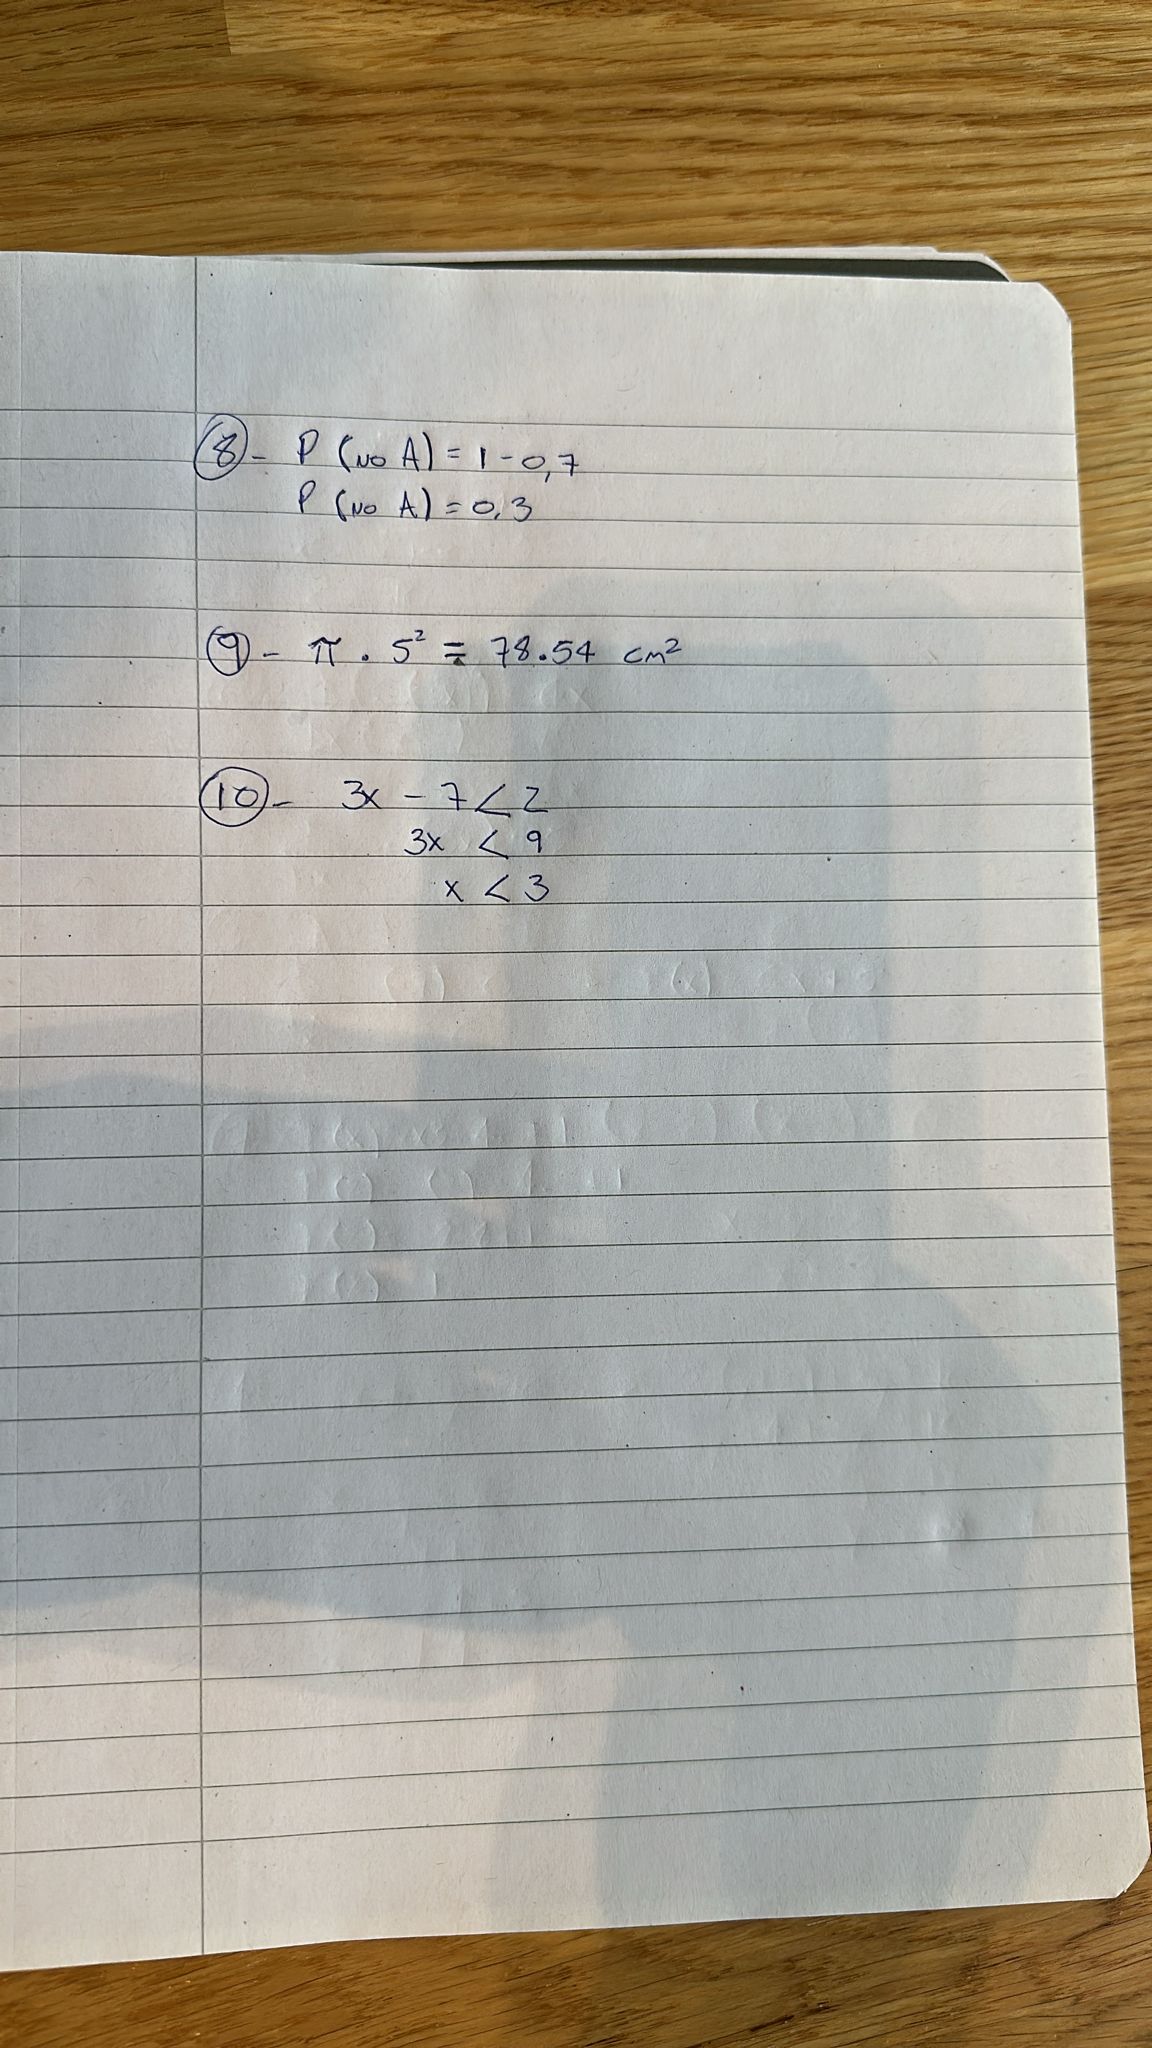 8- P (NO A) = 1-0,7
P (NO A) = 0,3
9- π . 5² = 78.54 cm²
10- 3x - 7 < 2
3x < 9
x < 3